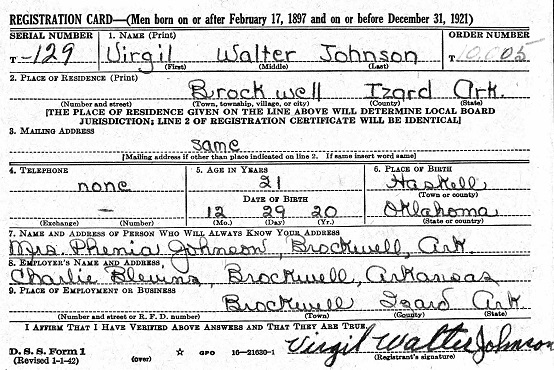 REGISTRATION CARD—(Men born on or after February 17, 1897 and on or before December 31, 1921)
SERIAL NUMBER 1. NAME (Print) ORDER NUMBER
T-129 Virgil Walter Johnson T 10,005
(First) (Middle) (Last)
2. PLACE OF RESIDENCE (Print)
Brockwell Izard Ark.
(Number and street) (Town, township, village, or city) (County) (State)
[THE PLACE OF RESIDENCE GIVEN ON THE LINE ABOVE WILL DETERMINE LOCAL BOARD
JURISDICTION; LINE 2 OF REGISTRATION CERTIFICATE WILL BE IDENTICAL]
3. MAILING ADDRESS
same
[Mailing address if other than place indicated on line 2. If same insert word same]
4. TELEPHONE 5. AGE IN YEARS 6. PLACE OF BIRTH
none 21 Haskell
DATE OF BIRTH (Town or county)
— 12 29 20 Oklahoma
(Exchange) (Number) (Mo.) (Day) (Yr.) (State or country)
7. NAME AND ADDRESS OF PERSON WHO WILL ALWAYS KNOW YOUR ADDRESS
Mrs. Phenia Johnson, Brockwell, Ark.
8. EMPLOYER'S NAME AND ADDRESS
Charlie Blevins, Brockwell, Arkansas
9. PLACE OF EMPLOYMENT OR BUSINESS
Brockwell Izard Ark
(Number and street or R. F. D. number) (Town) (County) (State)
I AFFIRM THAT I HAVE VERIFIED ABOVE ANSWERS AND THAT THEY ARE TRUE.
D. S. S. Form 1 Virgil Walter Johnson
(Revised 1-1-42) (over) ☆ GPO 16—21630-1 (Registrant's signature)